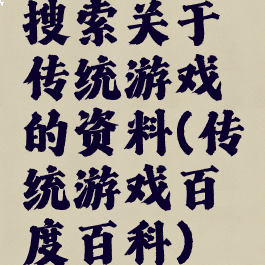 搜索关于
传统游戏
的资料(传
统游戏百
度百科)